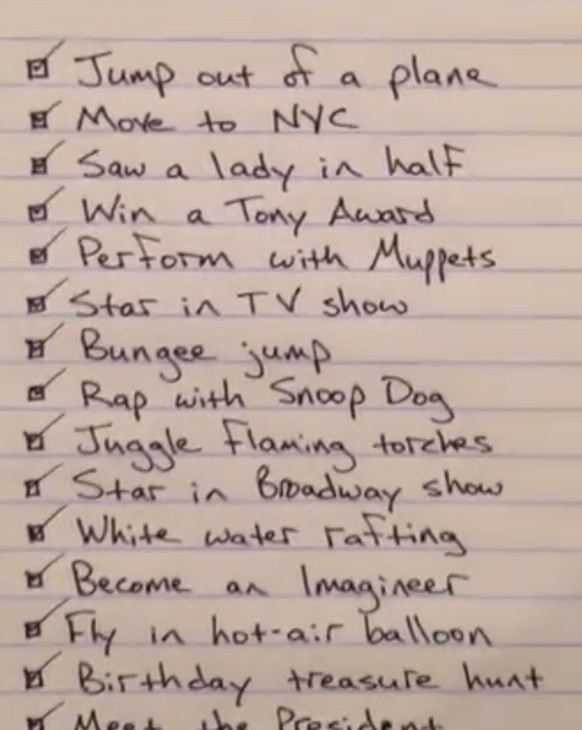 Jump out of a plane
Move to NYC
Saw a lady in half
Win a Tony Award
Perform with Muppets
Star in TV show
Bungee jump
Rap with Snoop Dog
Juggle flaming torches
Star in Broadway show
White water rafting
Become an Imagineer
Fly in hot-air balloon
Birthday treasure hunt
Meet the President